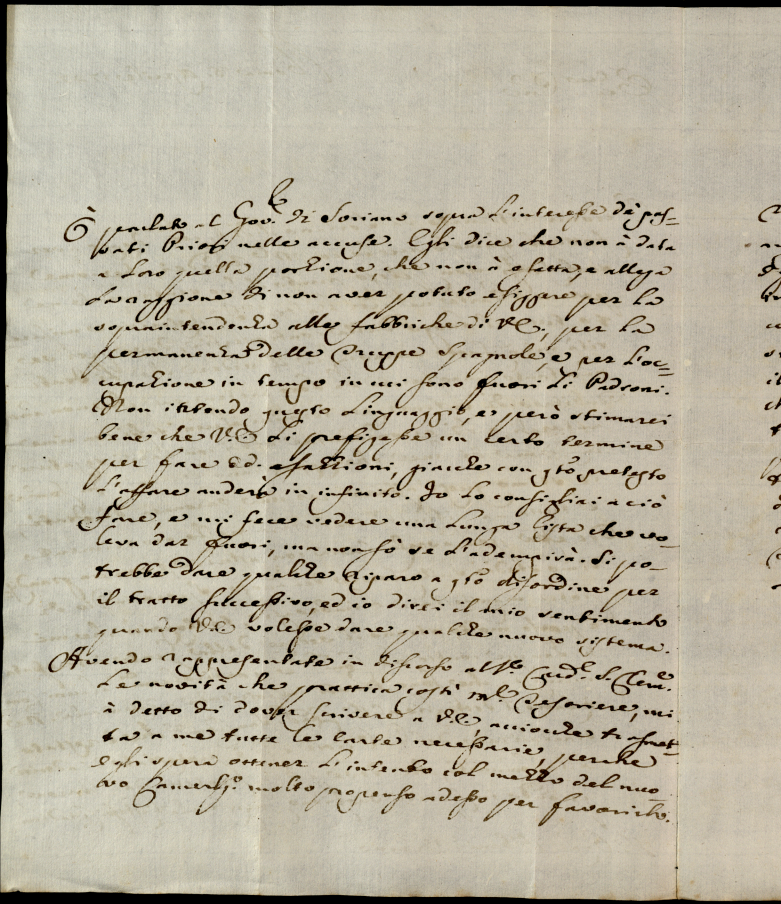 Ò parlato al Gov.re di Soriano sopra l'interesse de' pas=
sati Priori nelle accuse. Egli dice che non à data
a Loro quella porzione, che non à esatta, e allega
La raggione di non aver potuto esiggere per la
sopraintendenza alle fabbriche di V.E., per la
permanenza delle Truppe Spagnole, e per l'oc=
cupazione in tempo in cui sono fuori Li Padroni.
Non intendo questo Linguaggio, e però stimarei
bene che V.E. Li prefigesse un certo termine
per fare d.e esazzioni, giacche con q.to pretesto
L'affare anderà in infinito. Io Lo consigliai a ciò
fare, e mi fece vedere una Lunga Lista che vo-
leva dar fuori, ma non sò se L'adempirà. Si po-
trebbe dare qualche riparo a q.to disordine per
il tratto successivo, ed io direi il mio sentimento
quando V.E. volesse dare qualche nuovo sistema.
Avendo rappresentate in discorso al S.r Card.l S. Clem.te
Le novità che prattica costì M.r Tesoriere, mi
à detto di dover scrivere a V.E., accioche trasmet-
ta a me tutte le Carte necessarie, perche
egli spera ottener L'intento col mezzo del nuo-
vo Camerlgo molto propenso adesso per favorirlo.